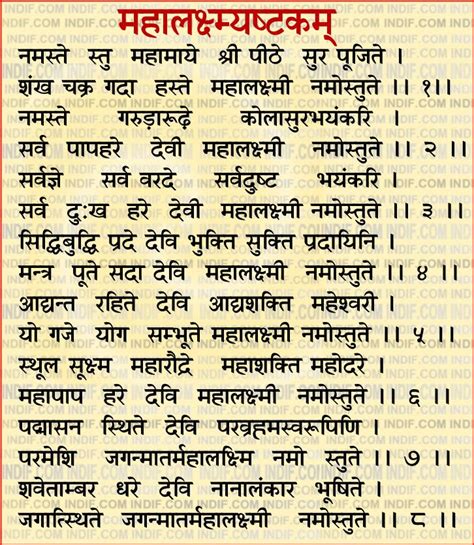 महालक्ष्म्यष्टकम्
नमस्ते स्तु महामाये श्री पीठे सुर पूजिते ।
शंख चक्र गदा हस्ते महालक्ष्मी नमोस्तुते ।। १।।
नमस्ते गरुड़ारूढ़ें कोलासुरभयंकरि ।
सर्व पापहरे देवी महालक्ष्मी नमोस्तुते ।। २ ।।
सर्वज्ञे सर्व वरदे सर्वदुष्ट भयंकरि ।
सर्व दुःख हरे देवी महालक्ष्मी नमोस्तुते ।। ३ ।।
सिद्धिबुद्धि प्रदे देवि भुक्ति सुक्ति प्रदायिनि ।
मन्त्र पूते सदा देवि महालक्ष्मी नमोस्तुते ।। ४ ।।
आद्यन्त रहिते देवि आद्यशक्ति महेश्वरी ।
यो गजे योग सम्भूते महालक्ष्मी नमोस्तुते ।। ५ ।।
स्थूल सूक्ष्म महारौद्रे महाशक्ति महोदरे ।
महापाप हरे देवि महालक्ष्मी नमोस्तुते ।। ६ ।।
पद्मासन स्थिते देवि परव्रहमस्वरूपिणि ।
परमेशि जगन्मातर्महालक्ष्मि नमो स्तुते ।। ७ ।।
शवेताम्बर धरे देवि नानालंकार भूषिते ।
जगात्स्थिते जगन्मातर्महालक्ष्मी नमोस्तुते ।। ८ ।।